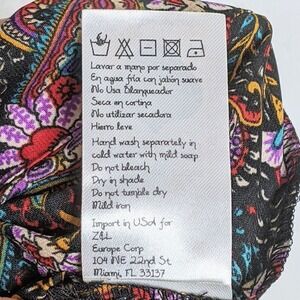 Lavar a mano por separado
En agua fria con jabón suave
No Usa Blanqueador
Seca en cortina
No utilizar secadora
Hierro leve
Hand wash separately in
cold water with mild soap
Do not bleach
Dry in shade
Do not tumble dry
Mild iron
Import in USA for
Z&L
Europe Corp
104 NE 22nd St
Miami, FL 33137